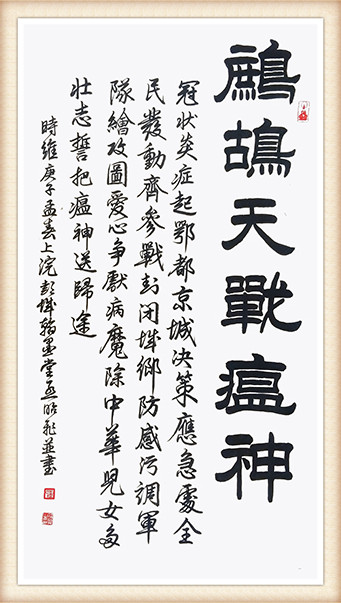 鷓鴣天戰瘟神
冠状炎症起鄂都京城决策應急處全
民發動齊參戰封闭城鄉防感污調軍
隊繪攻圖愛心争獻病魔除中華兒女多
壮志誓把瘟神送歸途
時維庚子孟春上浣彭城翰墨堂孟昭並書